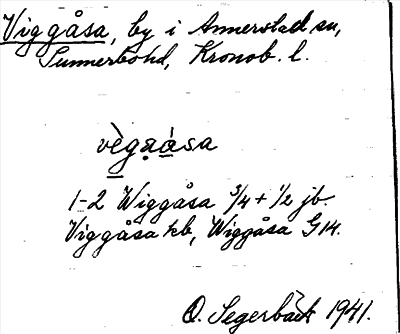 Viggåsa, by i Annerstad sn,
Sunnerbohd, Kronob. l.
vègạása
1-2 Wiggåsa 3/4 + 1/2 jb.
Viggåsa kb, Wiggåsa G14.
O. Segerbäck 1941.